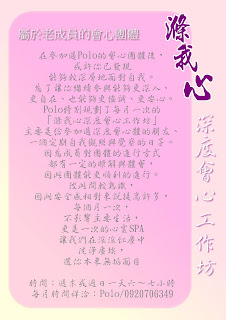 屬於老成員的會心團體
滌我心
深度會心工作坊
在參加過Polo的會心團體後,
或許你已發現
能夠較深層地面對自我。
為了讓你繼續參與能夠更深入、
更自在、也能夠更坦誠、更安心。
Polo特別規劃了每月一次的
「滌我心深度會心工作坊」
主要是給參加過深度會心團體的朋友、
一個定期自我觀照與覺察的日子。
因為成員對團體的進行方式
都有一定的瞭解與體會,
因此團體能更順利的進行。
彼此間較熟識,
因此安全感相對來說提高許多,
每個月一次,
不影響主要生活,
更是一次的心靈SPA
讓我們在深深紅塵中
洗淨塵垢,
還你本來無垢面目
時間:週末或週日一天六~七小時
每月時間詳洽:Polo/0920706349